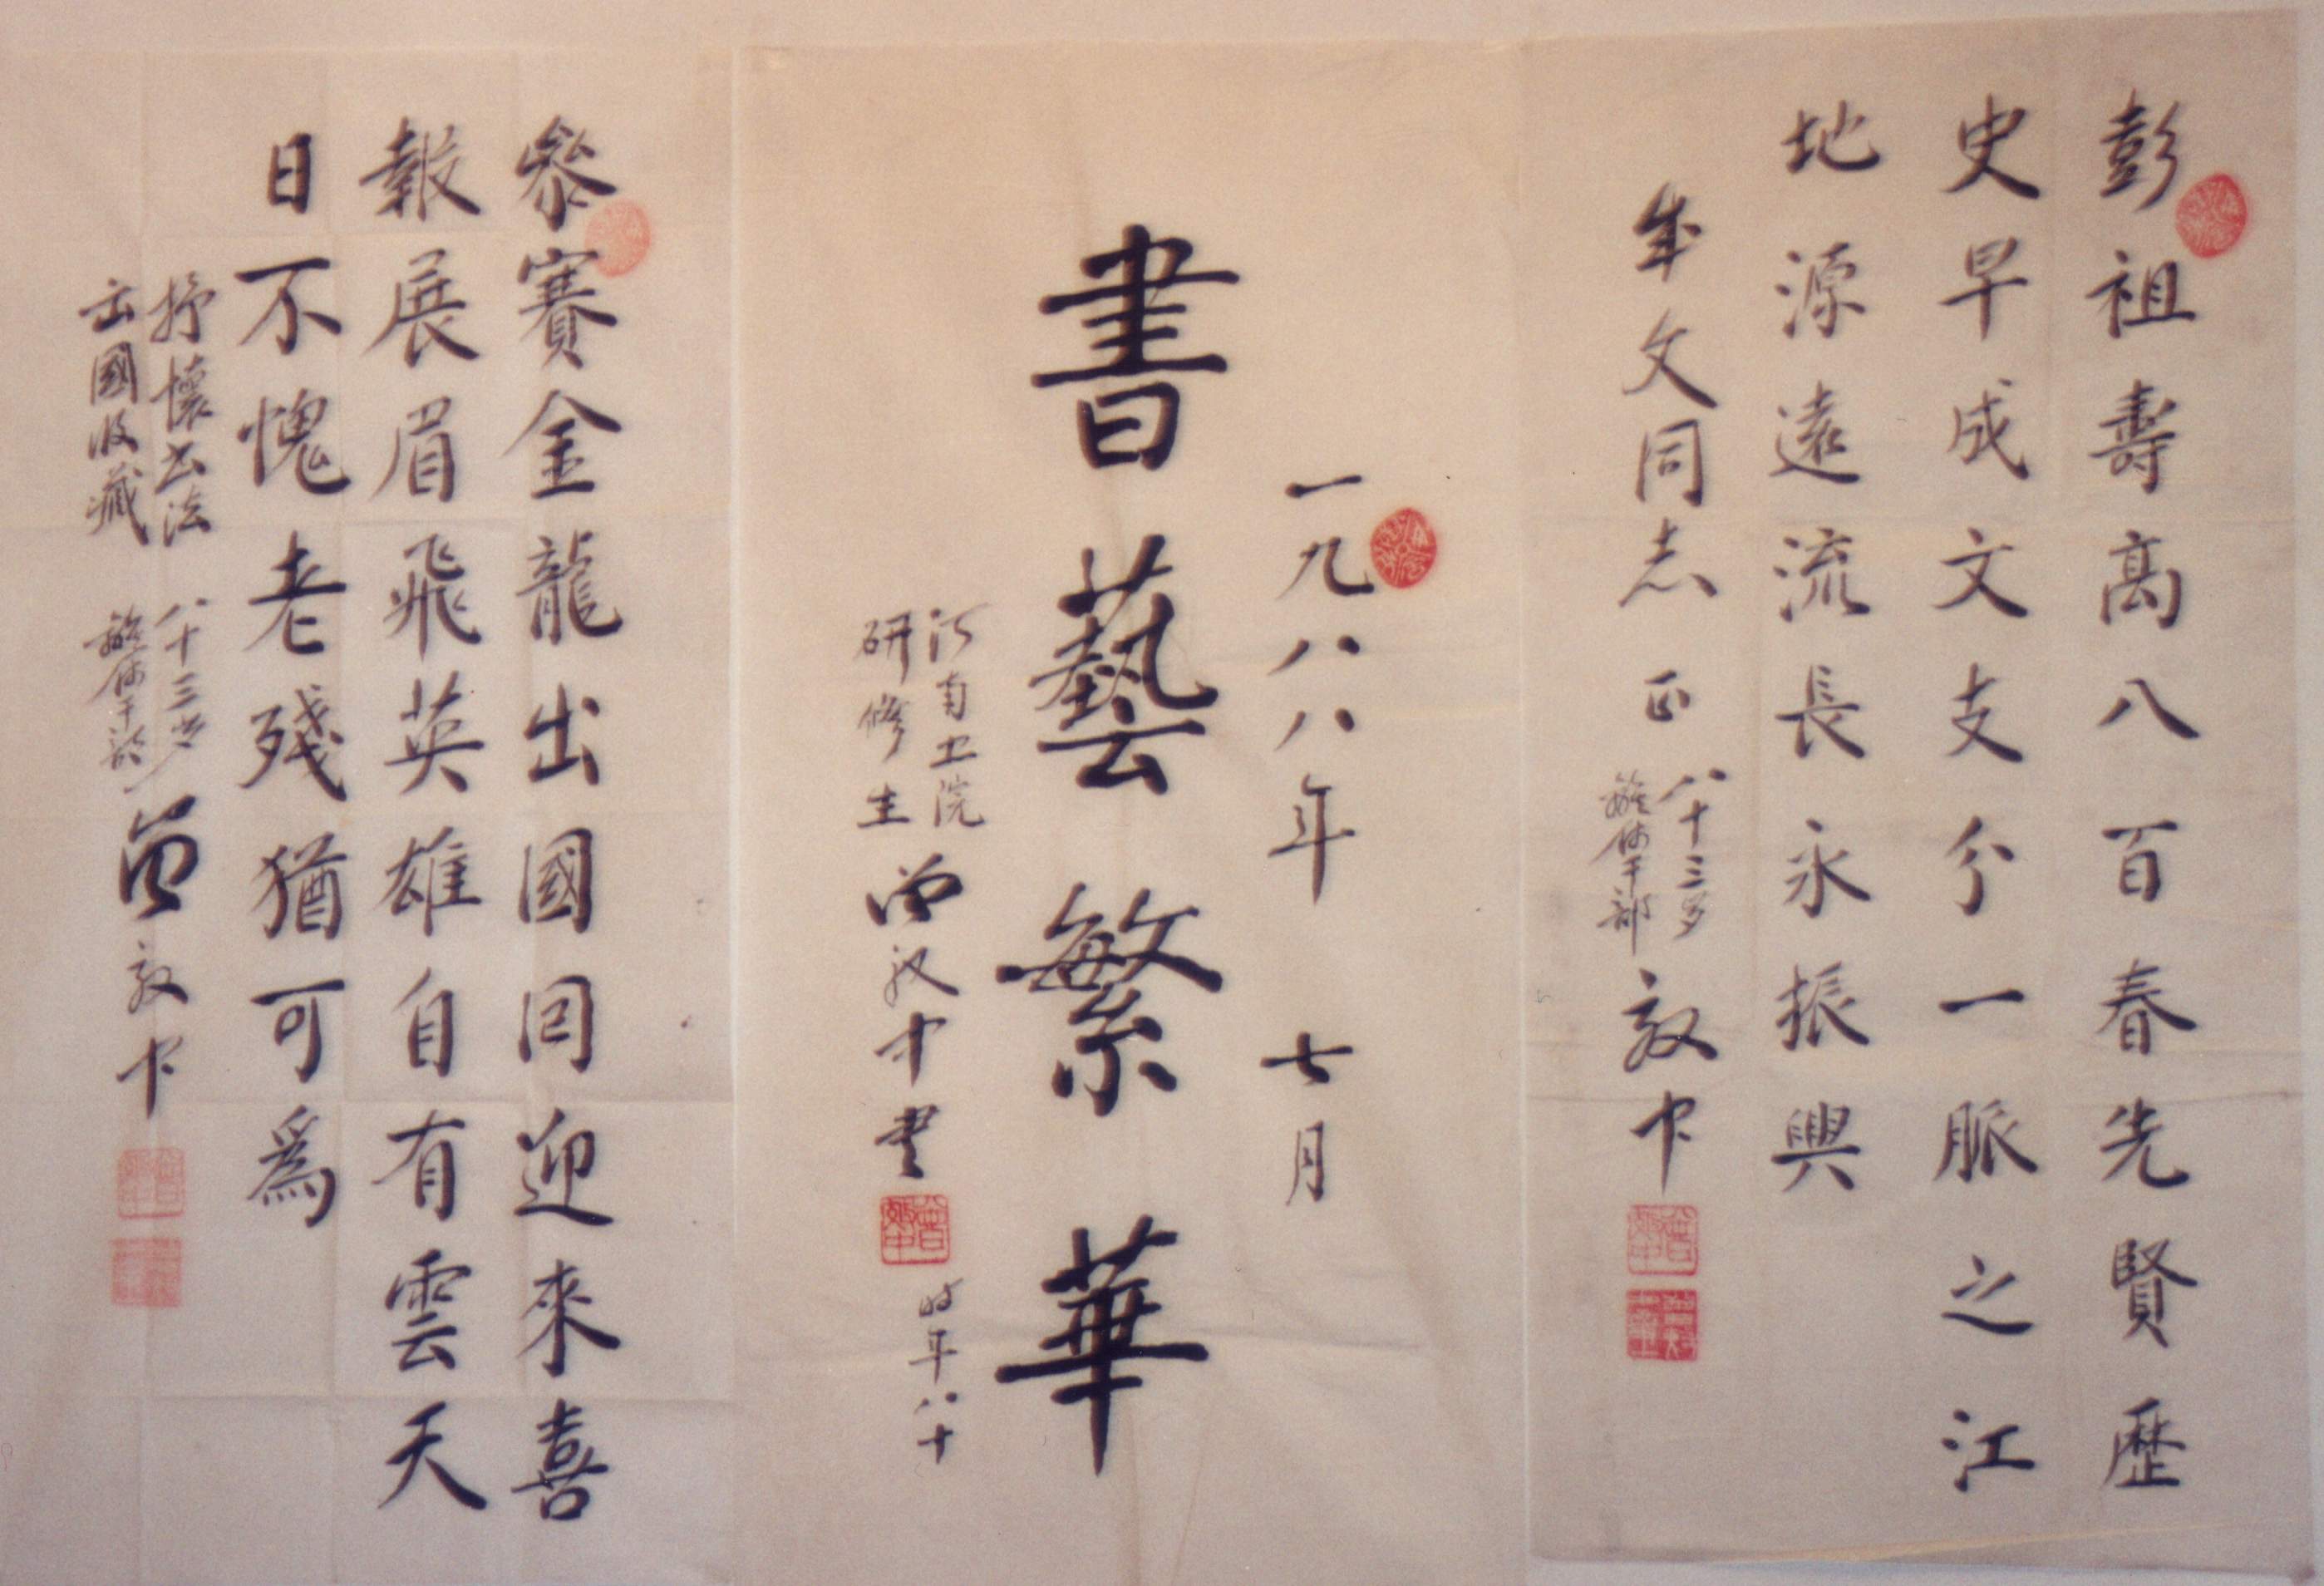 彭祖壽高八百春先賢歷
史早成文支分一脈之江
地源遠流長永振興
年文同志 正
八十三岁
離休干部
敦中
一九八八年 七月
書藝繁華
河南卫院
研修生
曾敦中書
时年八十
参賽金龍出國回迎來喜
報展眉飛英雄自有雲天
日不愧老殘猶可爲
抒懷书法
出國收藏
八十三岁
離休干部
曾敦中